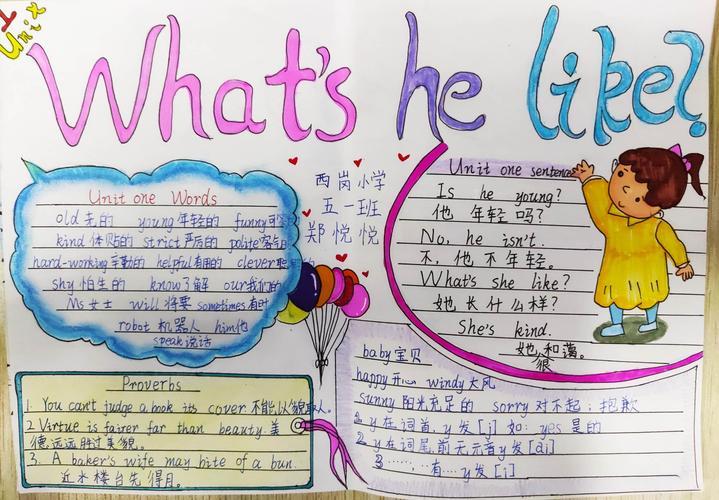 Unit 1
What's he like?
西岗小学
五一班
郑悦悦
Unit one Words
old 老的 young 年轻的 funny
kind 体贴的 strict 严厉的 polite 客气的
hard-working 辛勤的 helpful 有用的 clever 聪
shy 怕生的 know 了解 our 我们的
Ms 女士 will 将要 sometimes 有时
robot 机器人 him 他
speak 说话
Unit one sentence
Is he young?
他年轻吗?
No, he isn't.
不,他不年轻。
What's she like?
她长什么样?
She's kind.
她很和蔼。
Proverbs
1. You can't judge a book its cover 不能以貌取人。
2 Virtue is fairer far than beauty. 美
德远远胜过美貌。
3. A baker's wife may bite of a bun.
近水楼台先得月。
baby 宝贝
happy 开心 windy 大风
sunny 阳光充足的 sorry 对不起;抱歉
1 y在词首,y发[j] 如: yes 是的
2 y在词尾前无元音y发[ai]
3 ……,有…y发[i]